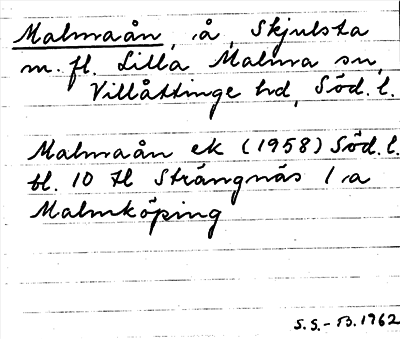 Malmaån, å, Skjulsta
m. fl. Lilla Malma sn,
Villåttinge hd, Söd. l.
Malmaån ek (1958) Söd. l.
bl. 10 H Strängnäs 1 a
Malmköping
S.S.-B. 1962